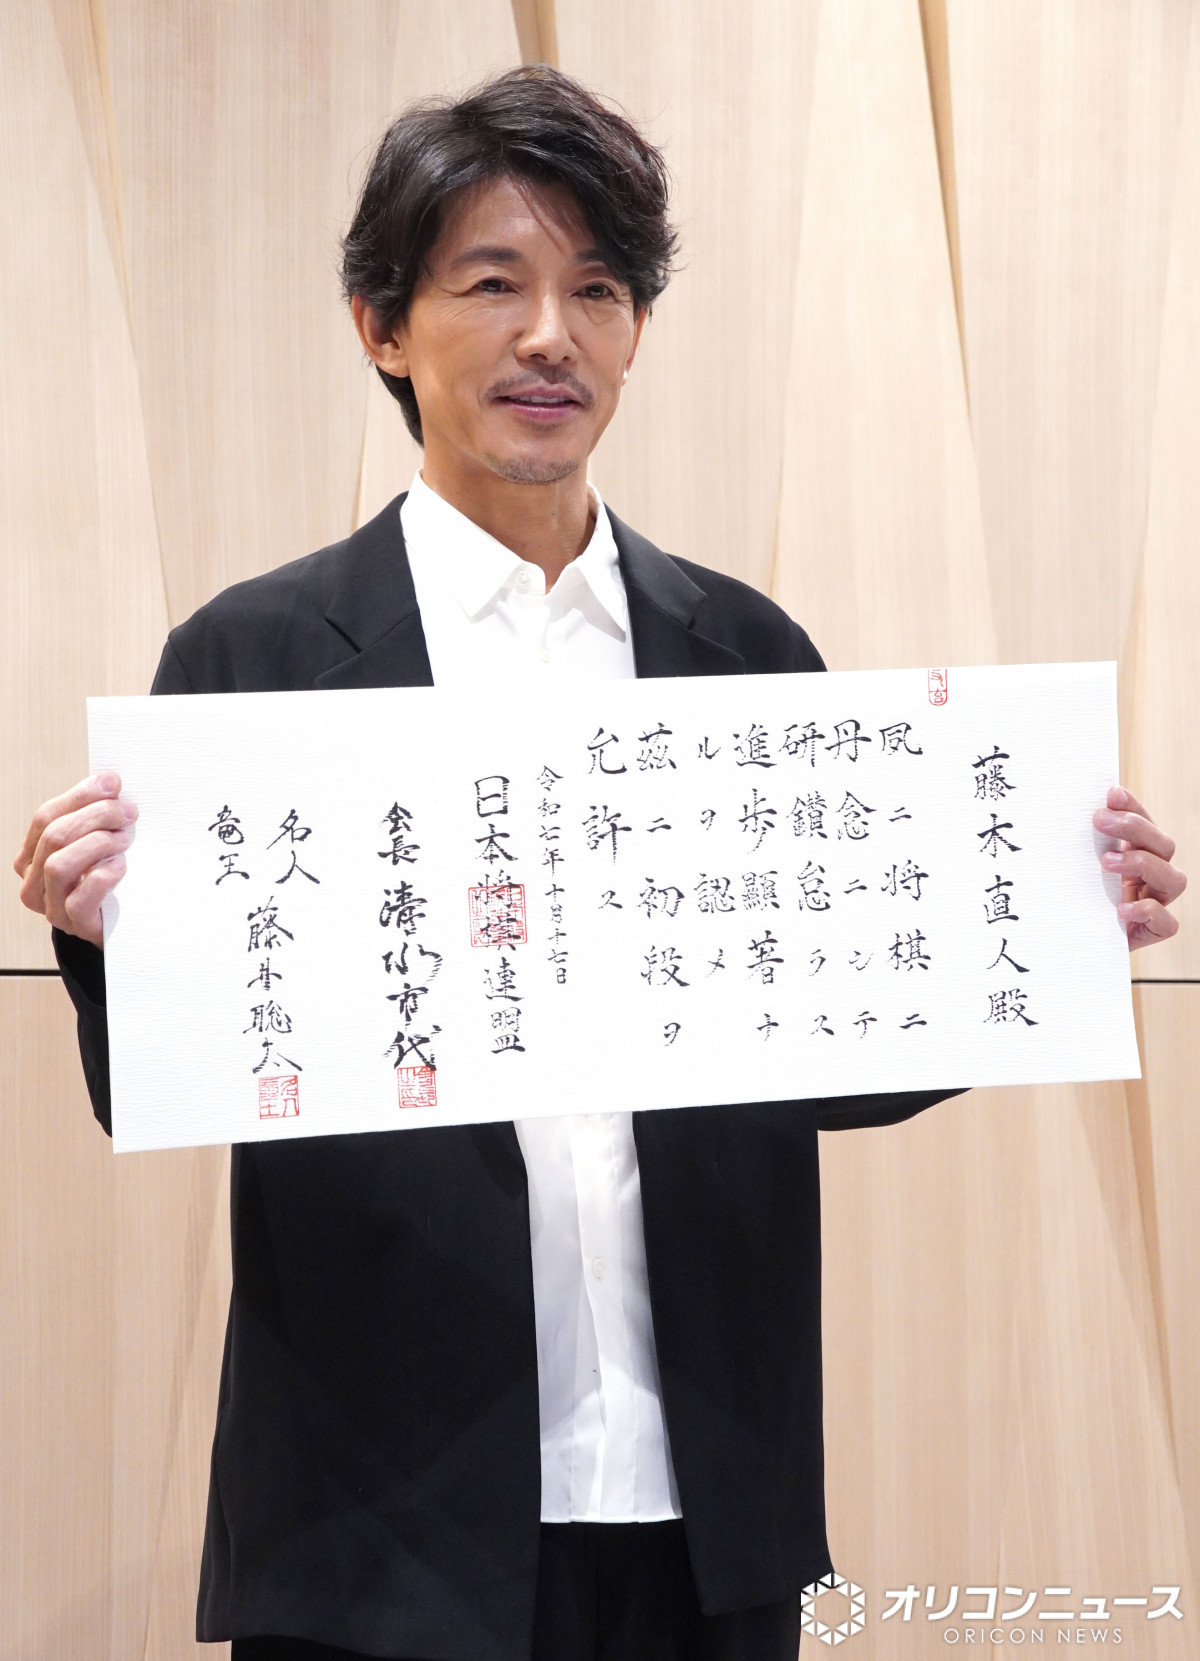 藤木直人殿
夙ニ将棋ニ
丹念ニシテ
研鑽怠ラス
進歩顯著ナ
ルヲ認メ
茲ニ初段ヲ
允許ス
令和七年十月十七日
日本将棋連盟
会長 清水市代
名人
竜王 藤井聡太
オリコンニュース
ORICON NEWS